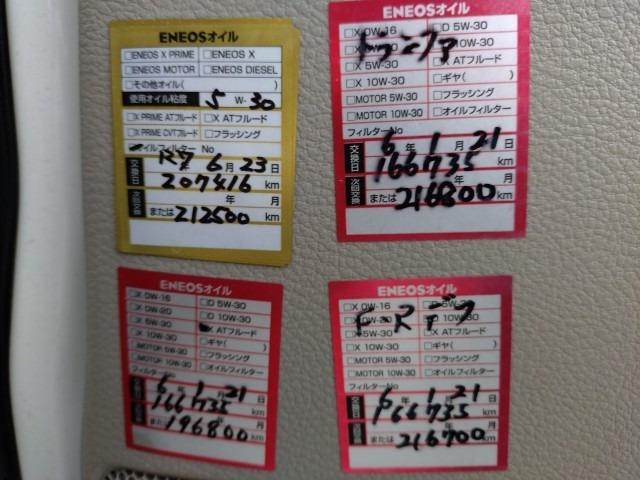 ENEOSオイル
□ENEOS X PRIME □ENEOS X
□ENEOS MOTOR □ENEOS DIESEL
□その他オイル( )
使用オイル粘度 5 W- 30
□X PRIME ATフルード □X ATフルード
□X PRIME CVTフルード □フラッシング
オイルフィルター No
交換日 R7 年 6月 23日
207416 km
次回交換 年 月
または 212500 km
ENEOSオイル
□X 0W-16 □D 5W-30
□X 0W-20 □D 10W-30
□X 5W-30 □X ATフルード
□X 10W-30 □ギヤ( )
□MOTOR 5W-30 □フラッシング
□MOTOR 10W-30 □オイルフィルター
フィルターNo
交換日 6年 1月 21日
166735 km
次回交換 年 月
または 216800 km
ENEOSオイル
□X 0W-16 □D 5W-30
□X 0W-20 □D 10W-30
□X 5W-30 X ATフルード
□X 10W-30 □ギヤ( )
□MOTOR 5W-30 □フラッシング
□MOTOR 10W-30 □オイルフィルター
フィルターNo
6年 1月 21日
166735 km
年 月
または 196800 km
ENEOSオイル
□X 0W-16 □D 5W-30
□X 0W-20 □D 10W-30
□X 5W-30 □X ATフルード
□X 10W-30 □ギヤ( )
□MOTOR 5W-30 □フラッシング
□MOTOR 10W-30 □オイルフィルター
F-R デフ
フィルターNo
交換日 6年 1月 21日
166735 km
年 月
または 216700 km